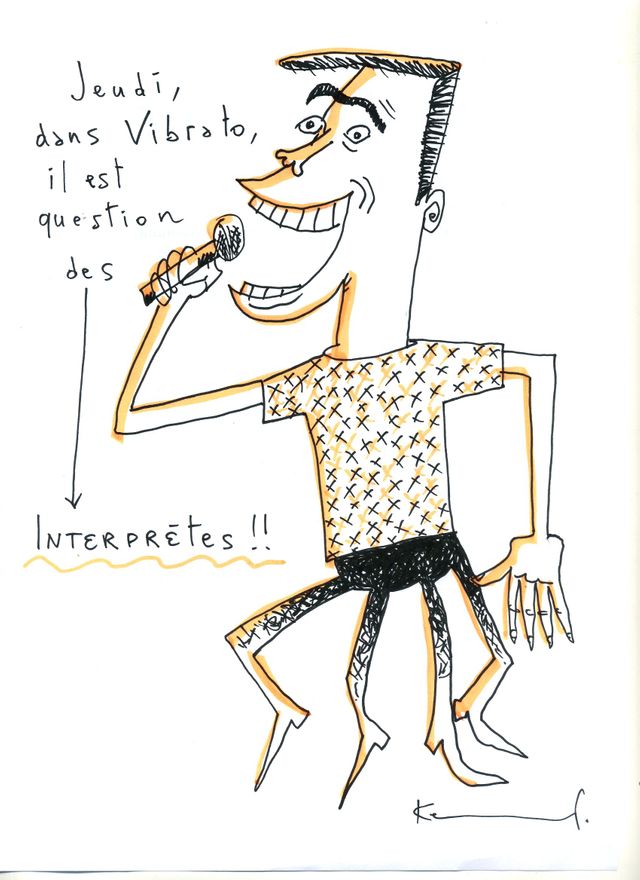 Jeudi,
dans Vibrato,
il est
question
des
INTERPRĒTES !!